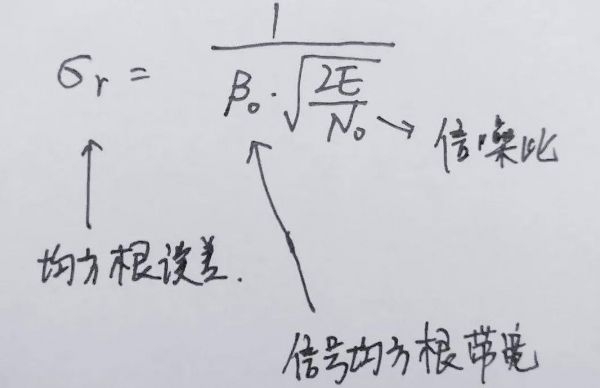 σr = 1 / (β₀ · √(2E / N₀))
信噪比
均方根误差.
信号均方根带宽